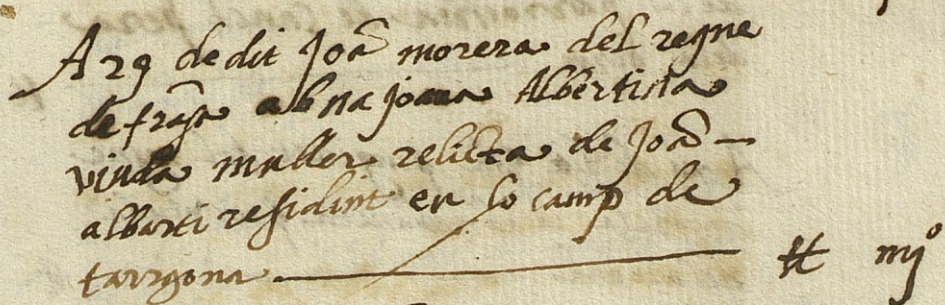 A 29 dedit Joā morera del regne
de frāsa ab na joana Albertina
viuda muller relicta de Joā
albarti residint en lo camp de
tarragona tt iiijº